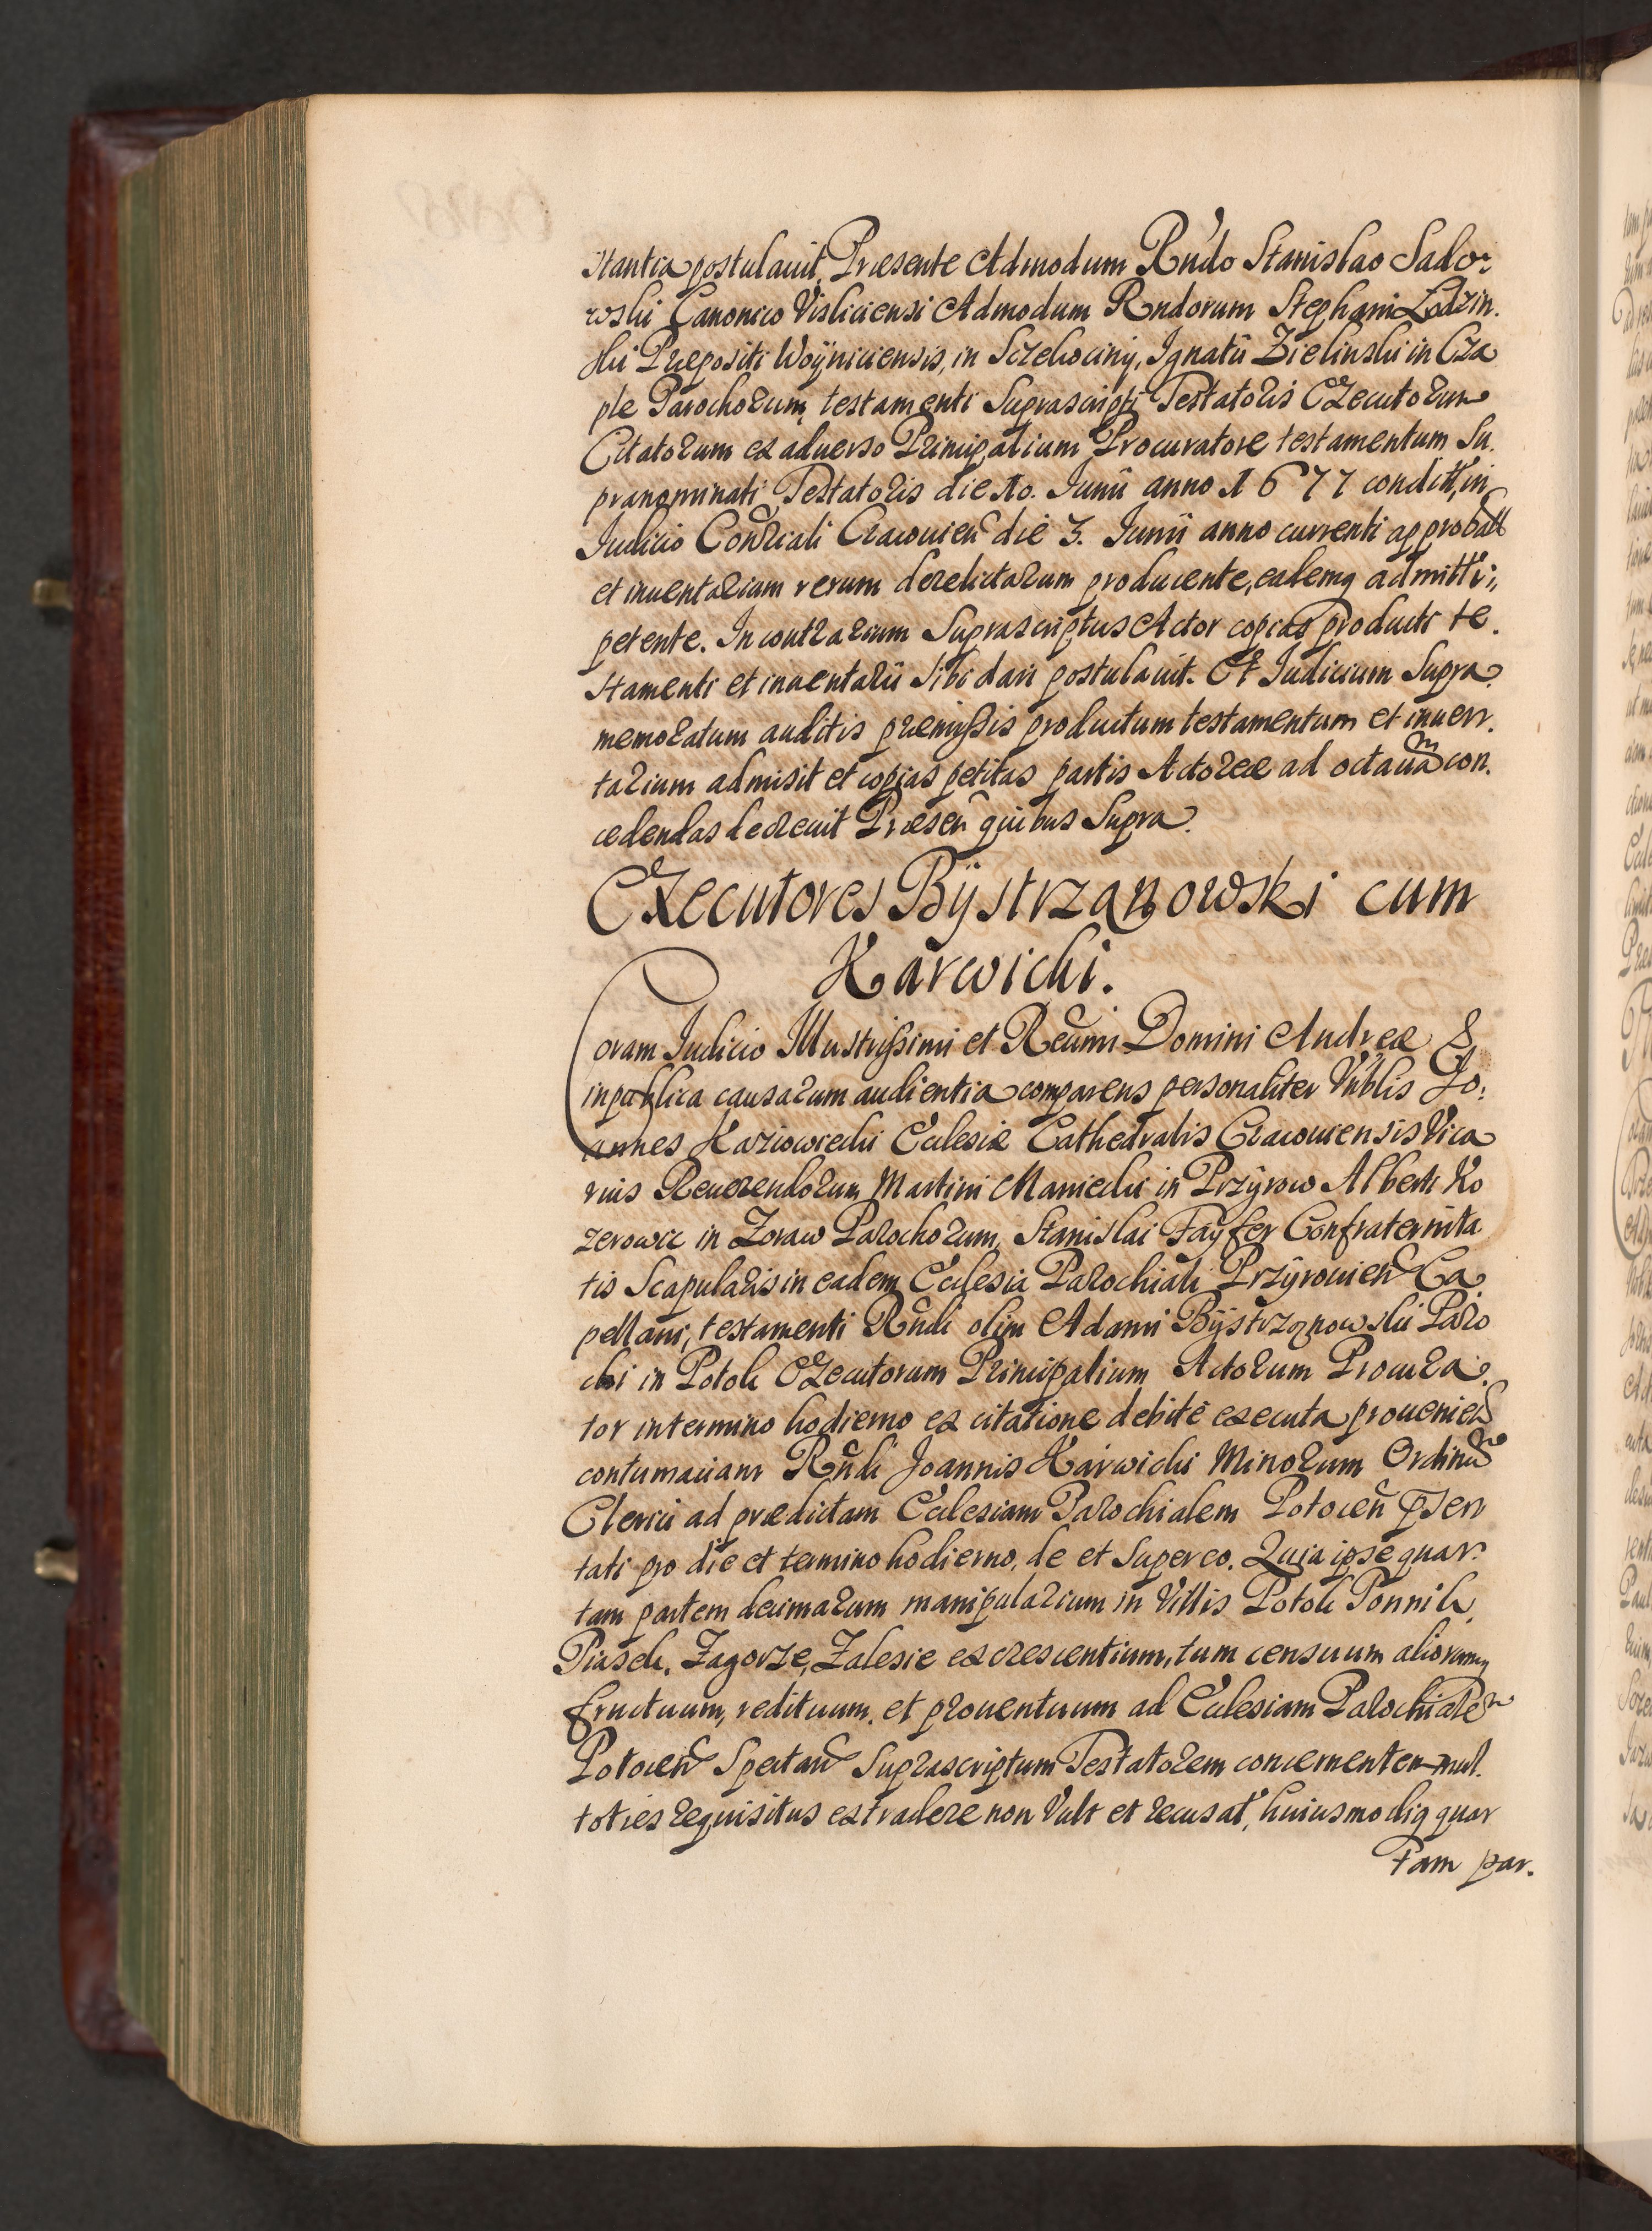 stantia postulauit, Præsente Admodum Rndo Stanislao Sado-
wski Canonico Visliciensi Admodum Rndorum Stephani Lodzin.
ski Præpositi Woÿniciensis, in Sczekociny, Ignatii Zielinski in Cza
ple Parochorum, testamenti Suprascripti Testatoris Executorum
Citatorum ex aduerso Principalium Procuratore testamentum Su.
pranominati Testatoris die 10. Junii anno 1677 conditt, in
Judicio Consriali Cracouien die 3. Junii anno currenti approbatt
et inuentarium rerum derelictarum producente, eademq admitti,
petente. In contrarium Suprascriptus Actor copias producti te.
stamenti et inuentarii sibi dari postulauit. Et Judicium Supra
memoratum auditis præmissis productum testamentum et inuen.
tarium admisit et copias petitas partis Actoreæ ad octauam con.
cedendas decreuit Præsen quibus Supra.
Executores Bÿstrzanowski cum
Karwicki.
Coram Judicio Illustrissimi et Reumi Domini Andreæ &
in publica causarum audientia comparens personaliter Vnblis Jo:
annes Karziowiecki Ecclesiæ Cathedralis Cracouiensis Vica
rius Reuerendorum Martini Maniecki in Przÿrow Alberti Ko
zerowic in Zoraw Parochorum, Stanislai Fayfer Confraternita
tis Scapularis in eadem Ecclesia Parochiali Przÿrouien Ca
pellani, testamenti Rndi olim Adami Bÿstrzonowski Paro
chi in Potok Executorum Principalium Actorum Procura.
tor in termino hodierno ex citatione debite executa prouenien
contumaciam Rndi Joannis Karwicki Minorum Ordinum
Clerici ad prædictam Ecclesiam Parochialem Potocen Præsen
tati pro die et termino hodierno, de et super eo. Quia ipse quar.
tam partem decimarum manipularium in Villis Potok Ponnik
Piasek, Zagorze, Zalesie excrescentium, tum censuum aliorumq
fructuum, redituum. et prouentuum ad Ecclesiam Parochialem
Potocen Spectan Suprascriptum Testatorem concernentem mul.
toties requisitus extradere non Vult et recusat, huiusmodiq quar
tam par.